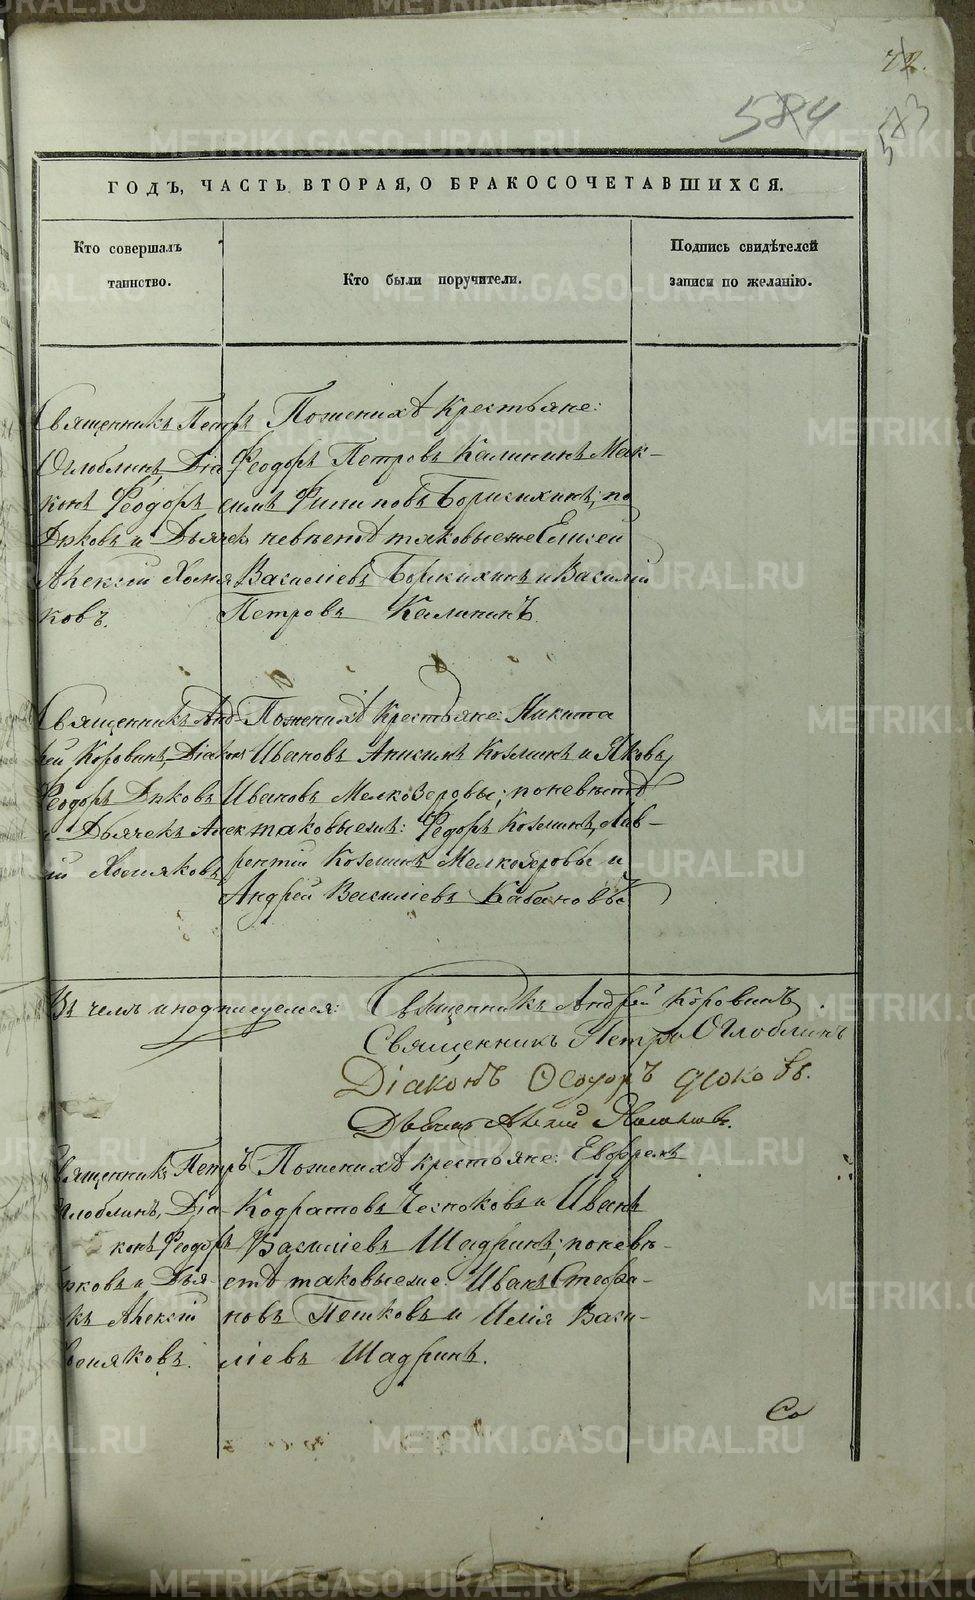 584
573
ГОДЪ, ЧАСТЬ ВТОРАЯ, О БРАКОСОЧЕТАВШИХСЯ.
Кто совершалъ
таинство.
Кто были поручители.
Подпись свидѣтелей
записи по желанію.
Священникъ Петръ
Оглоблинъ, Діа
конъ Феодоръ
Дьковъ и Дьячекъ
Алексій Хосня
ковъ.
По женихѣ крестьяне:
Феодоръ Петровъ Калининъ, Мак-
симъ Филиповъ; по
невѣстѣ таковые же Елисей
Василіевъ и Василій
Петровъ Калининъ.
Священникъ Анд-
рей Коровинъ, Діаконъ
Феодоръ Дьковъ
и Дьячекъ Алек
сій Хосняковъ
По женихѣ крестьяне: Никита
Ивановъ Анисимъ Козминъ и Яковъ
Ивановъ Мелкозеровы; по невѣстѣ
таковые же: Федоръ Козминъ, Лав-
рентій Козминъ Мелкозеровы и
Андрей Василіевъ Кабановъ
Въ чемъ и подписуемся:
Священникъ Андрей Коровинъ
Священникъ Петръ Оглоблинъ
Діаконъ Ѳеодоръ
Священникъ Петръ
Оглоблинъ, Діа-
конъ Феодоръ
ьковъ и Дья-
къ Алексій
осняковъ.
По женихѣ крестьяне: Евфремъ
Кодратовъ Чесноковъ и Иванъ
Василіевъ Шадринъ; по невѣ-
стѣ таковые же: Иванъ Стефа-
новъ Пешковъ и Илія Васи-
ліевъ Шадринъ.
Со
METRIKI.GASO-URAL.RU